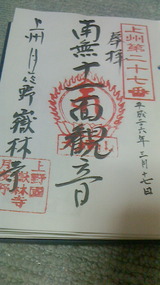 上州第二十七番
奉拝
平成二六年三月十七日
南無十一面観音
上州月夜野嶽林寺
上野国
嶽林寺
月夜野